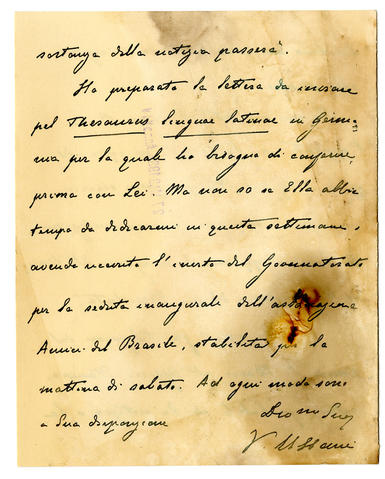 sostanza della notizia passerà".
Ho preparato la lettera da inviare
pel Thesaurus linguae latinae in Germa-
nia per la quale ho bisogno di conferire
prima con Lei. Ma non so se Ella abbia
tempo da dedicarmi in questa settimana,
avendo ricevuto l'invito del Governatorato
per la seduta inaugurale dell'associazione
Amici del Brasile, stabilita per la
mattina di sabato. Ad ogni modo sono
a Sua disposizione
V. Ussani